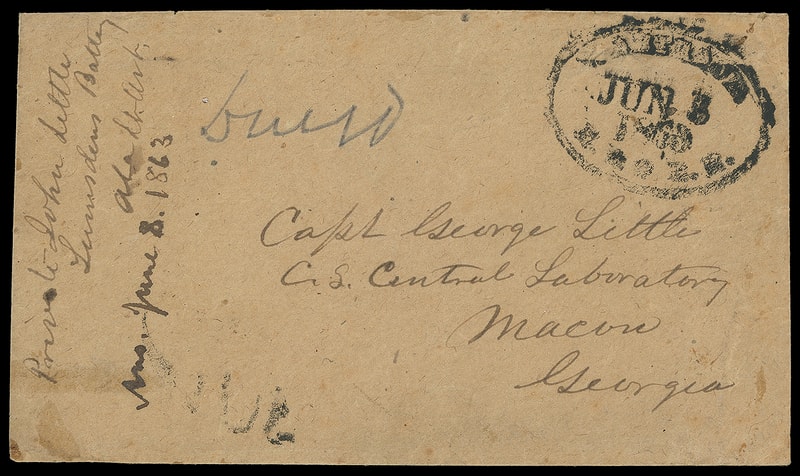 Private John Little
Lumsdens Battery
Ala Lt. Art.
Ans. June 8. 1863
Due 10
JUN 3
1863
R.R.
Capt George Little
C.S. Central Laboratory
Macon
Georgia